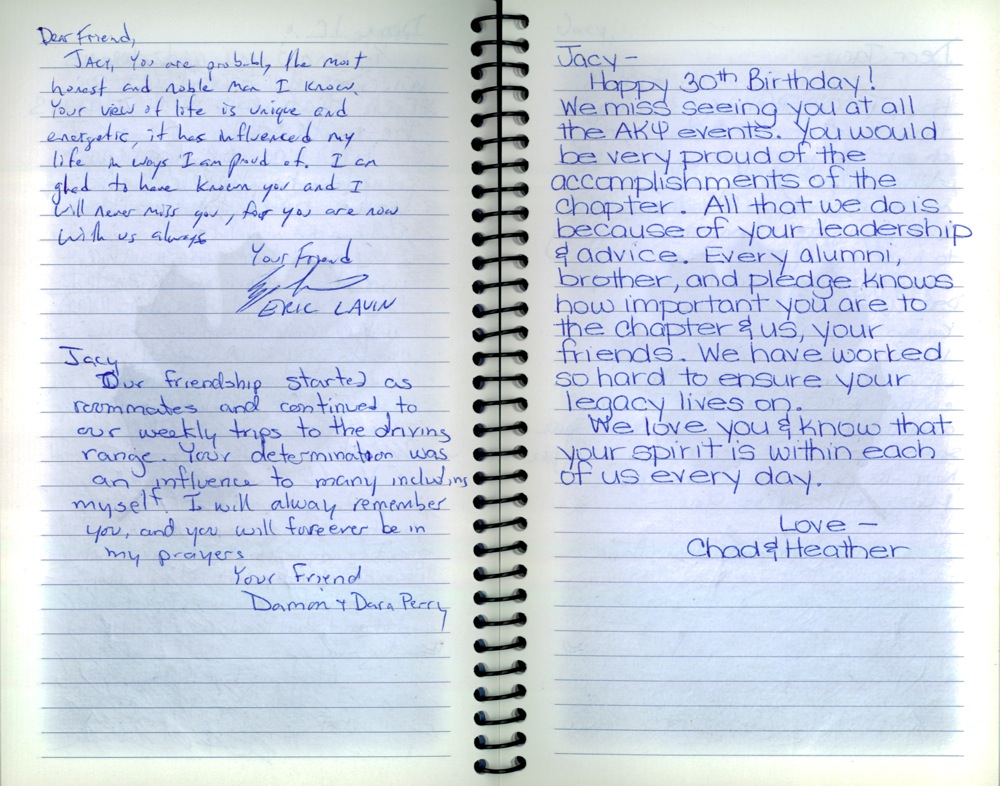 Dear Friend,
Jacy, You are probably the most
honest and noble man I know.
Your view of life is unique and
energetic, it has influenced my
life in ways I am proud of. I am
glad to have known you and I
will never miss you, for you are now
with us always
Your Friend
ERIC LAVIN
Jacy
Our friendship started as
roommates and continued to
our weekly trips to the driving
range. Your determination was
an influence to many including
myself. I will alway remember
you, and you will foreever be in
my prayers
Your Friend
Damon + Dara Perry
Jacy –
Happy 30th Birthday!
We miss seeing you at all
the AKΨ events. You would
be very proud of the
accomplishments of the
chapter. All that we do is
because of your leadership
& advice. Every alumni,
brother, and pledge knows
how important you are to
the chapter & us, your
friends. We have worked
so hard to ensure your
legacy lives on.
We love you & know that
your spirit is within each
of us every day.
Love –
Chad & Heather